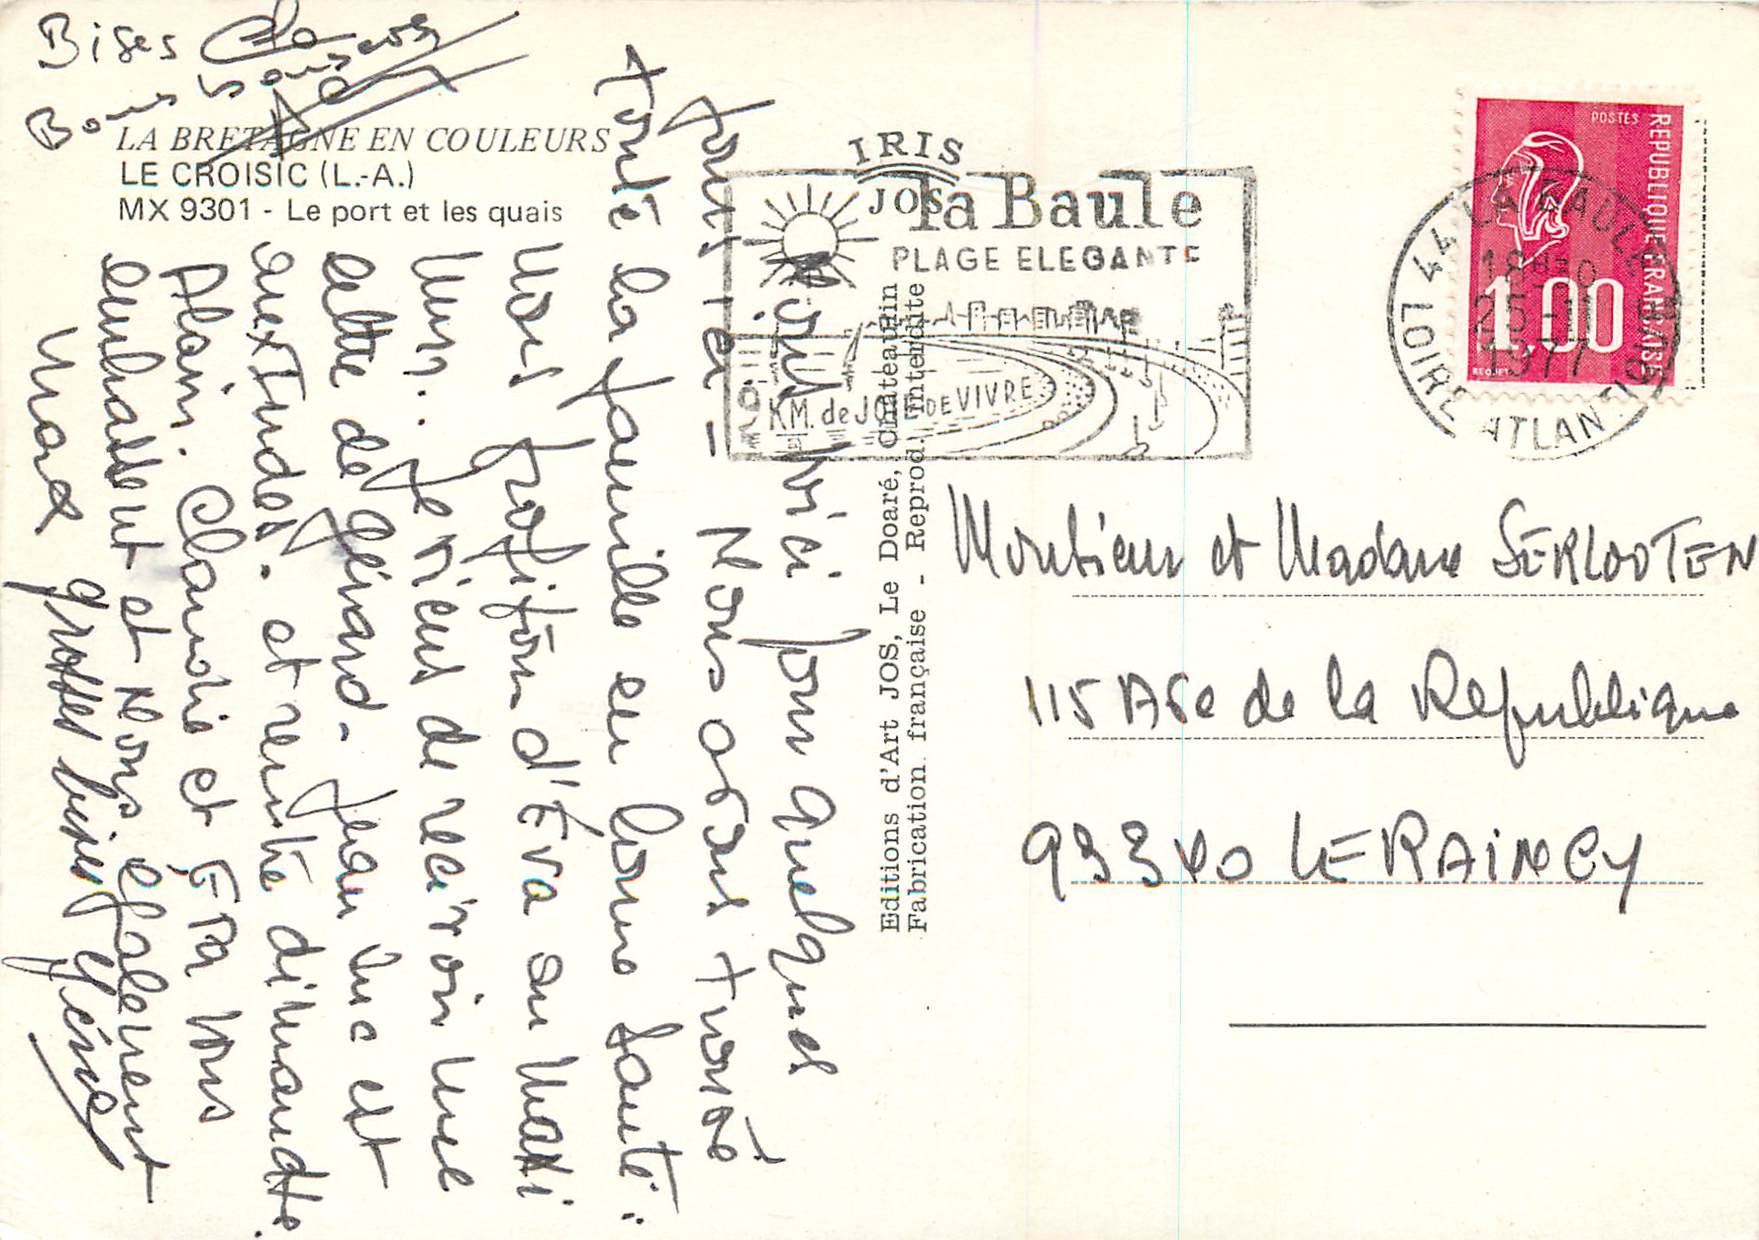 LA BRETAGNE EN COULEURS
LE CROISIC (L.-A.)
MX 9301 - Le port et les quais
IRIS
JOS
la Baule
PLAGE ELEGANTE
9 KM. de JOIE DE VIVRE
POSTES
REPUBLIQUE FRANCAISE
1,00
BEQUET
44 LA BAULE
18H30
25-11
1977
LOIRE ATLANTIQUE
Editions d'Art JOS, Le Doaré, Chateaulin
Fabrication française - Reprod. interdite
Monsieur et Madame SERLOOTEN
115 Ave de la République
93340 LE RAINCY
Nous voici pour quelques
jours ici - Nous avons trouvé
toute la famille en bonne santé.
Nous profitons d'Eva au maxi
mum. Je viens de recevoir une
lettre de Gérard. Jean Luc et
aux Indes. et reniée
Alain. Claudie et Eva vous
embrassent et nous également
grosses bises
Max
Bises